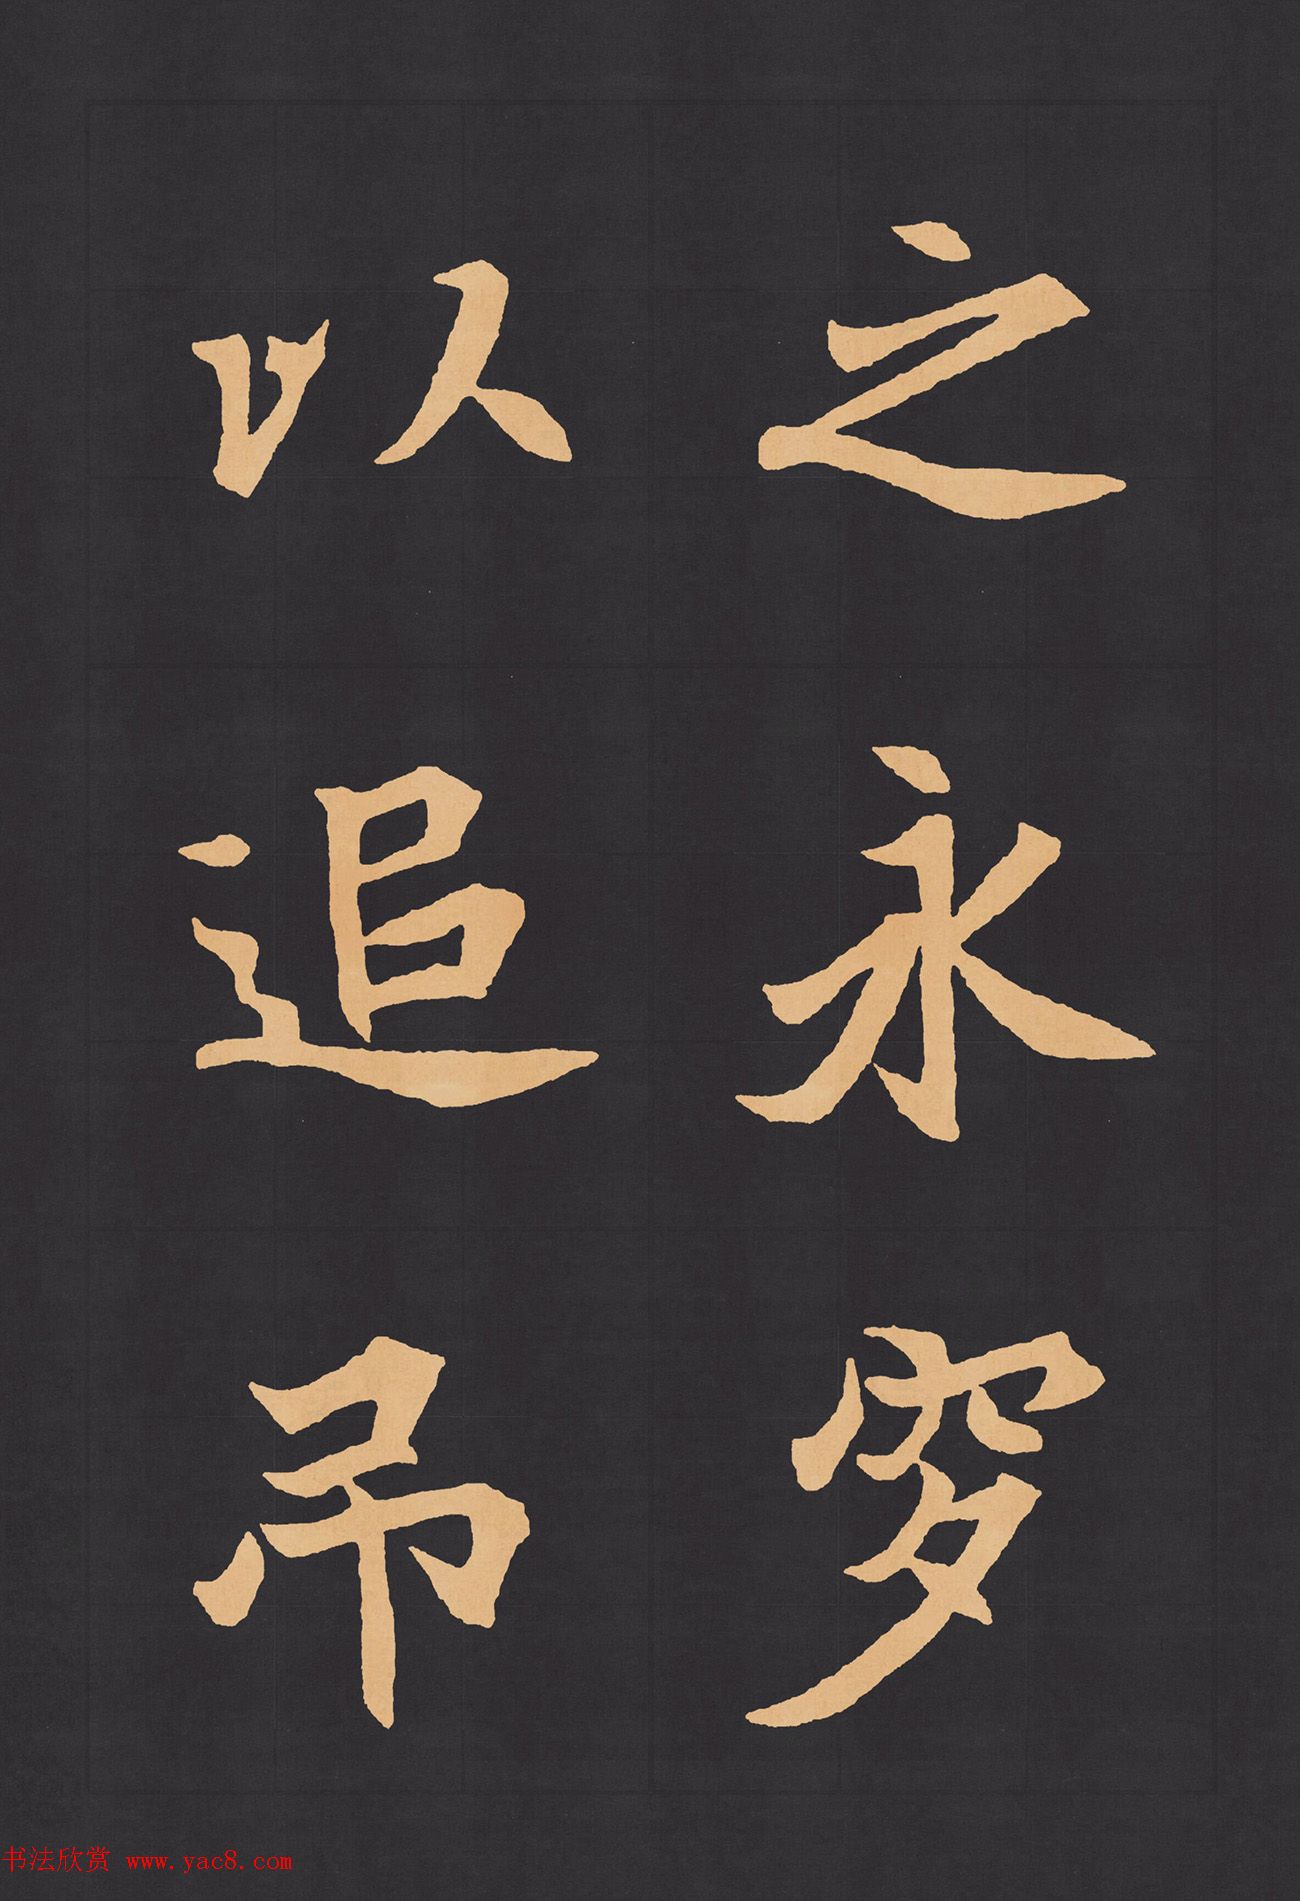 之永穸
以追吊
书法欣赏 www.yac8.com